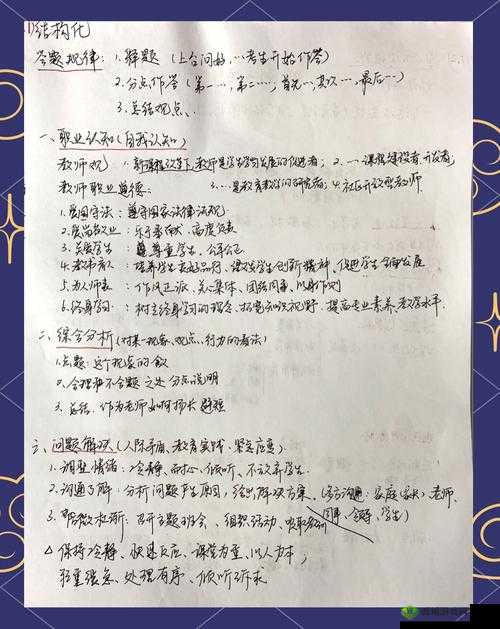 结构化
答题规律：1.释题（上台问好，…考生开始作答）
2.分点作答（第一…，第二…；首先…其次…，最后…）
3.总结观点、
一、职业认知（自我认知）
教师观：1.新课程改革下，教师是学生学习发展的促进者；2.…课程建设者、开发者；
教师职业道德：3.…是教育教学的研究者；4.社区开放型教师.
1.爱国守法：遵守国家法律法规
2.爱岗敬业：乐于奉献，高度负责
3.关爱学生：尊重学生，公平公正
4.教书育人：培养学生良好品行，激发学生创新精神、促进学生全面发展
5.为人师表：作风正派、关心集体、团结同事、以身作则
6.终身学习：树立终身学习的理念、拓宽知识视野、提高专业素养、教学水平.
二、综合分析（对某一现象、观点、行为的看法）
1.点题：这个现象的
2.合理和不合题之处分点说明
3.总结，作为老师如何扬长避短
六、问题解决（人际矛盾、教育实践、紧急应急）
1.调整情绪：冷静、耐心、倾听、不放弃学生.
2.沟通了解：分析问题产生原因，给出解决方案、（多方沟通：家庭（家长）、老师、
同事、领导、学生）
3.召开主题班会、组织活动、
△保持冷静、快速反应、课堂为重、以人为本，
轻重缓急、处理有序、倾听诉求